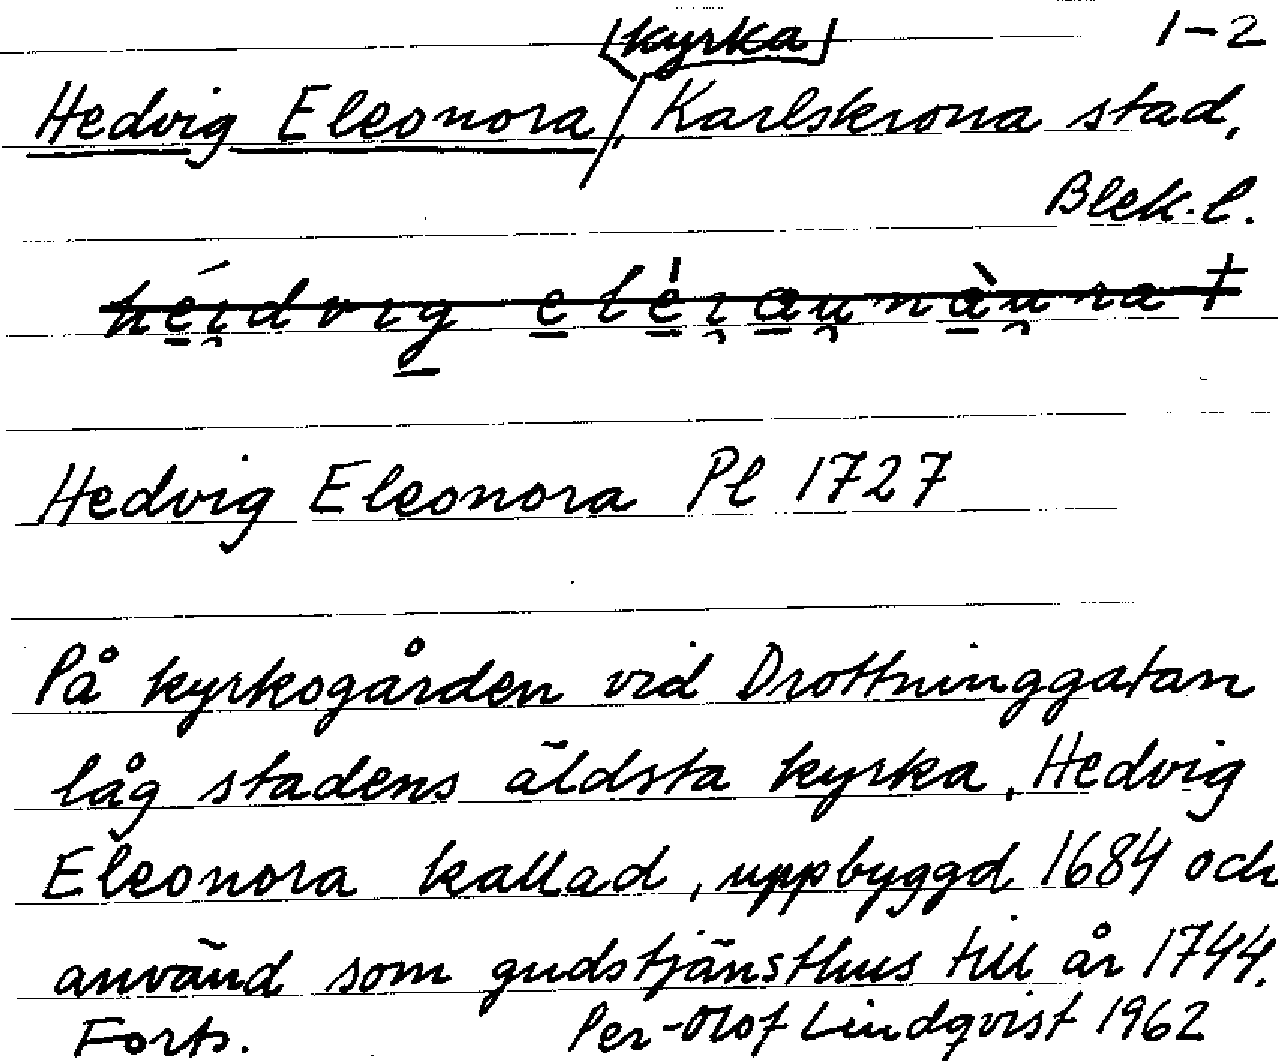 [kyrka] 1-2
Hedvig Eleonora/, Karlskrona stad,
Blek. l.
Hedvig Eleonora Pl 1727
På kyrkogården vid Drottninggatan
låg stadens äldsta kyrka, Hedvig
Eleonora kallad, uppbyggd 1684 och
använd som gudstjänsthus till år 1744.
Forts. Per-Olof Lindqvist 1962